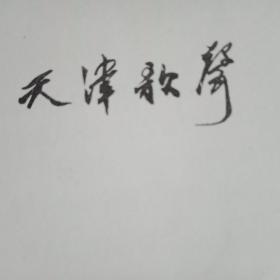 天津歌聲